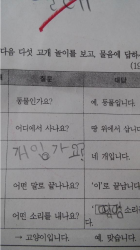 다음 다섯 고개 놀이를 보고, 물음에 답하
(19
질문
대답
동물인가요?
예, 동물입니다.
어디에서 사나요?
땅 위에서 삽니다
네 개입니다.
어떤 말로 끝나나요?
'이'로 끝납니다
어떤 소리를 내나요?
→ 고양이입니다.
예, 맞습니다